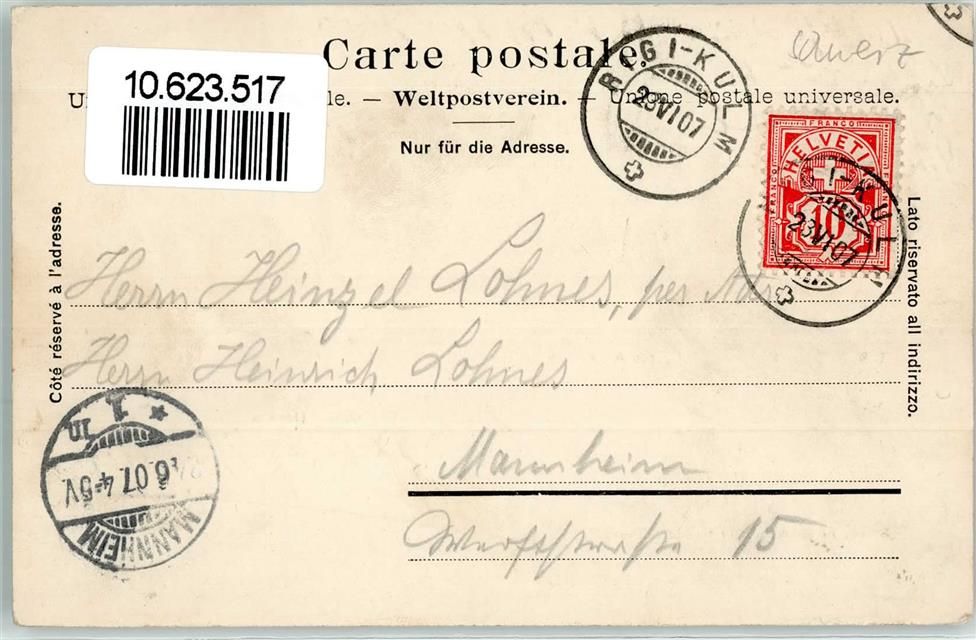 Carte postale.
10.623.517
le. — Weltpostverein. — Unione postale universale.
Nur für die Adresse.
RIGI-KULM
23 VI 07
FRANCO
HELVETIA
FRANCO
10
RIGI-KULM
23 VI 07
Côté réservé à l'adresse.
Lato riservato all indirizzo.
Herrn Heinzel Lohnes, per Adr.
Herrn Heinrich Lohnes
Mannheim
Werftstraße 15
MANNHEIM
24.6.07.4-5V.
* 1